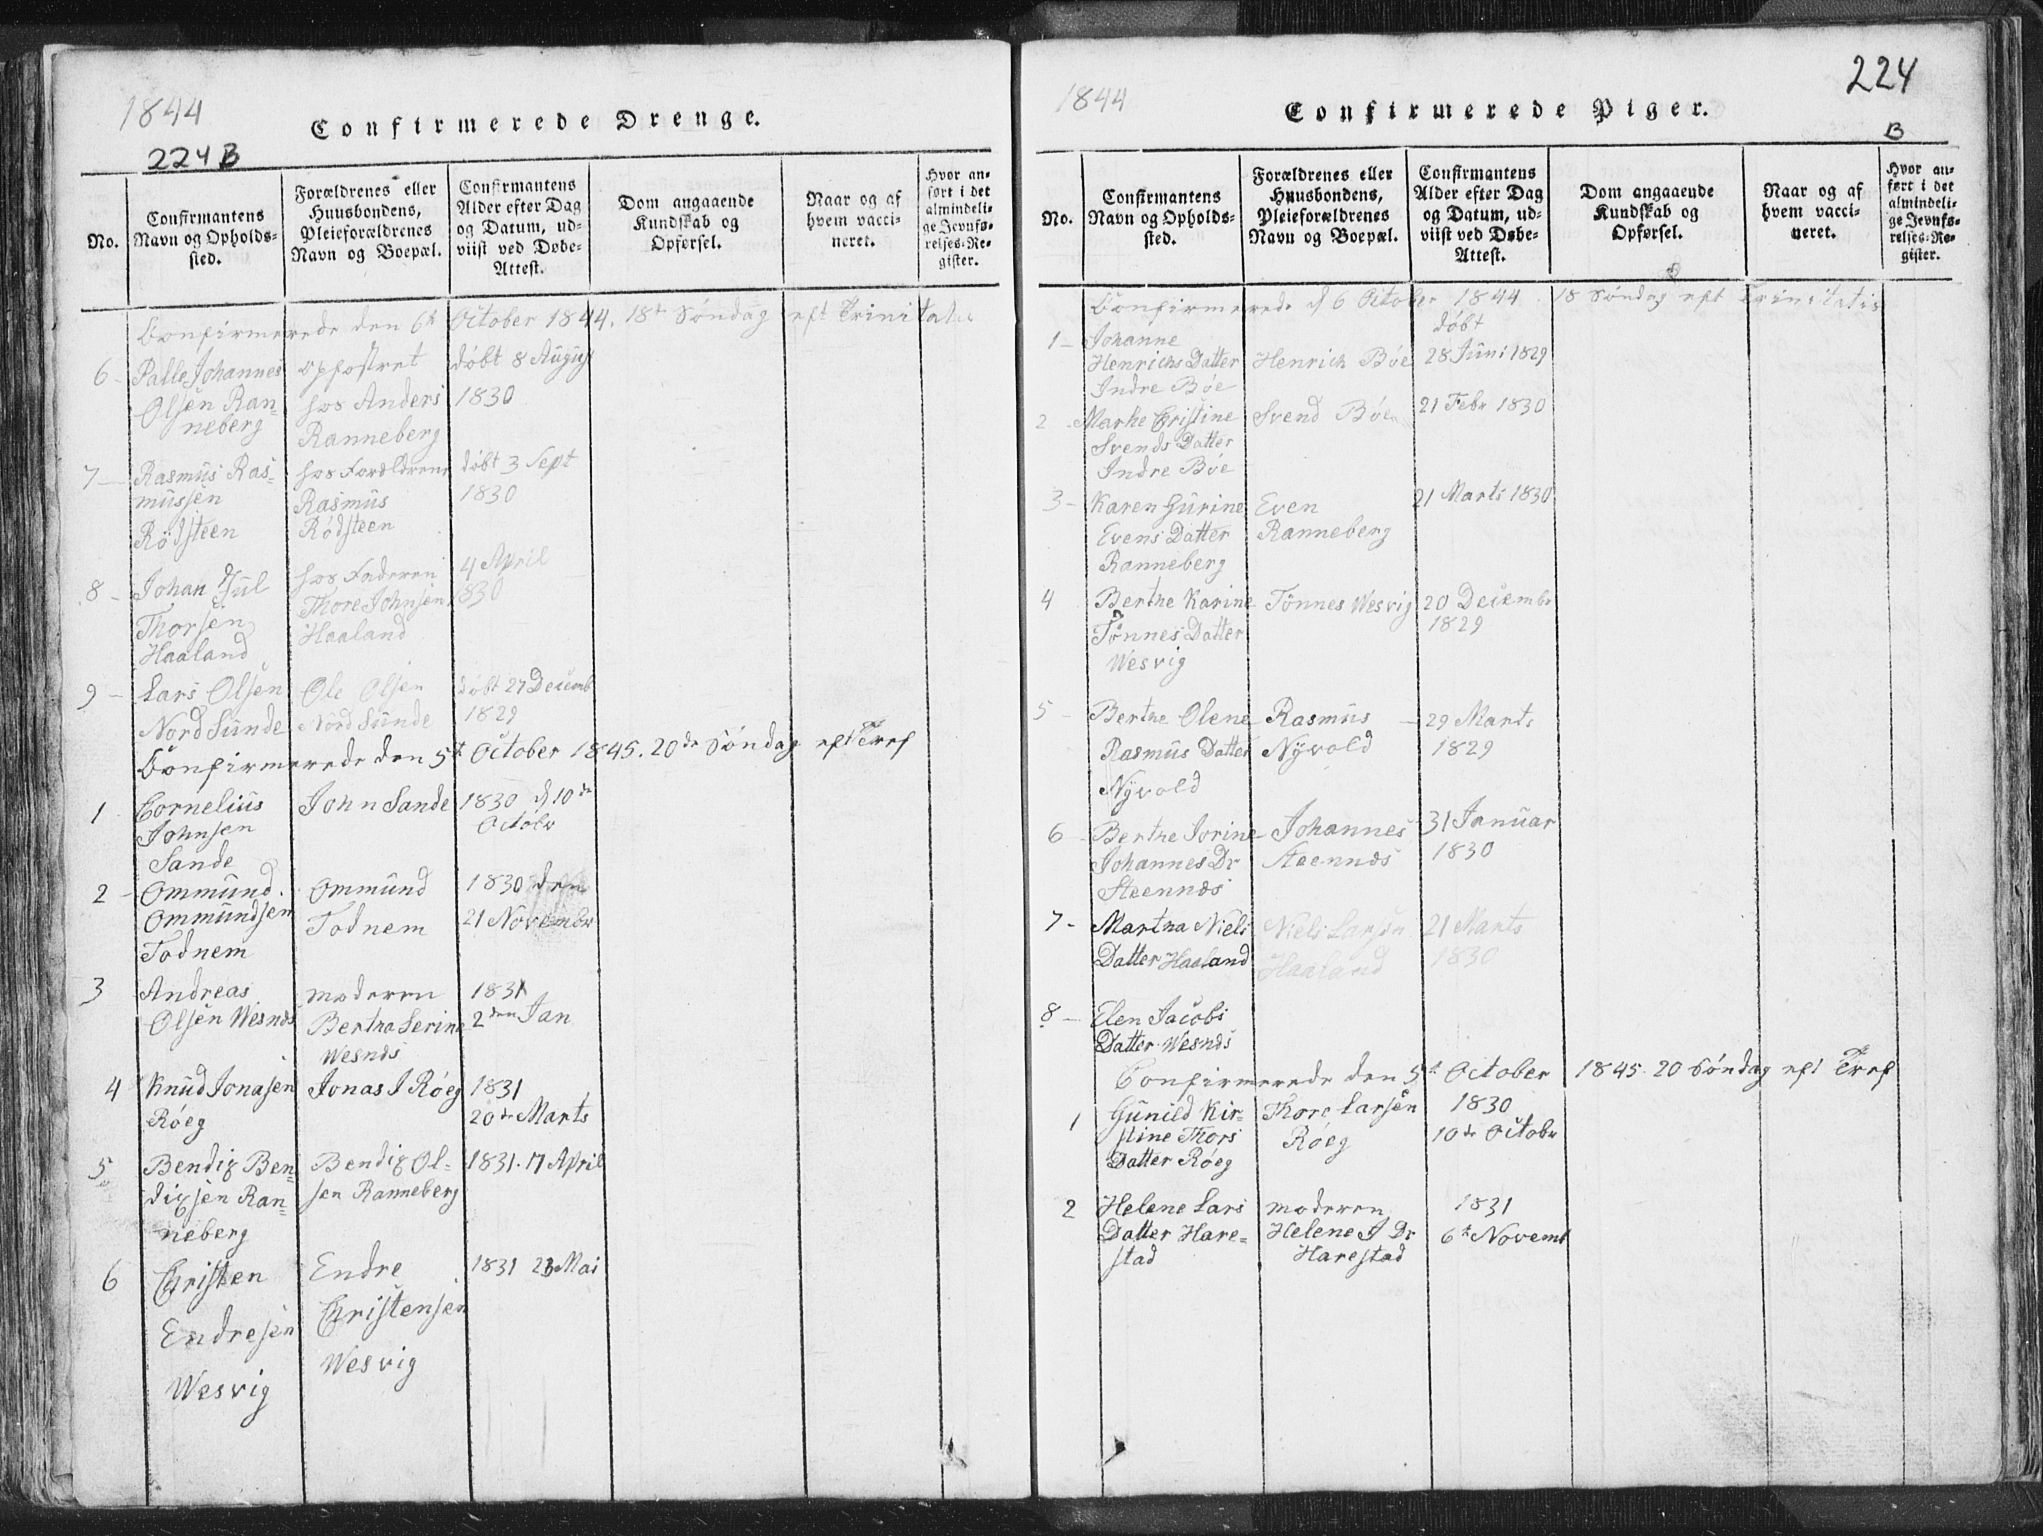 1844
Confirmerede Drenge.
224 B
No.
Confirmantens
Navn og Opholds-
sted.
Forældrenes eller
Huusbondens,
Pleieforældrenes
Navn og Boepæl.
Confirmantens
Alder efter Dag
og Datum, ud-
viist ved Døbe-
Attest.
Dom angaaende
Kundskab og
Opførsel.
Naar og af
hvem vacci-
neret.
Hvor an-
ført i det
almindeli-
ge Jevnfø-
relses-Re-
gister.
Confirmerede den 6t October 1844. 18de Søndag eft Trinitatis
6 - Palle Johannes
Olsen Ran-
neberg
opfostret
hos Anders
Ranneberg
døbt 8 August
1830
7 - Rasmus Ras-
mussen
Rødsteen
hos Forældrene
Rasmus
Rødsteen
døbt 3 Sept
1830
8 - Johan Jul
Thorsen
Haaland
hos Faderen
Thore Johnsen
Haaland
4 April
1830
9 - Lars Olsen
Nord Sunde
Ole Olsen
Nord Sunde
døbt 27 Decemb
1829
Confirmerede den 5t October 1845. 20de Søndag eft Tref
1 Cornelius
Johnsen
Sande
John Sande
1830 d 10de
Octobr
2 - Ommund
Ommundsen
Todnem
Ommund
Todnem
1830 den
21 Novembr
3 Andreas
Olsen Wesnæs
moderen
Bertha Serine
Wesnæs
1831
2den Jan
4 Knud Jonasen
Røeg
Jonas J Røeg
1831
20de Marts
5 Bendix Ben-
dixsen Ran-
neberg
Bendix Ol-
sen Ranneberg
1831. 17 April
6 Christen
Endresen
Wesvig
Endre
Christensen
Wesvig
1831 23 Mai
1844
Confirmerede Piger.
224
B
No.
Confirmantens
Navn og Opholds-
sted.
Forældrenes eller
Huusbondens,
Pleieforældrenes
Navn og Boepæl.
Confirmantens
Alder efter Dag
og Datum, ud-
viist ved Døbe-
Attest.
Dom angaaende
Kundskab og
Opførsel.
Naar og af
hvem vacci-
neret.
Hvor an-
ført i det
almindeli-
ge Jevnfø-
relses-Re-
gister.
Confirmerede d 6 October 1844. 18 Søndag eft Trinitatis
1 - Johanne
Henrichs Datter
Indre Bøe
Henrich Bøe
døbt
28 Juni 1829
2 - Marthe Cristine
Svends Datter
Indre Bøe
Svend Bøe
21 Febr 1830
3 - Karen Gurine
Evens Datter
Ranneberg
Even
Ranneberg
21 Marts 1830
4 Berthe Karine
Tønnes Datter
Wesvig
Tönnes Wesvig
20 Decembr
1829
5 - Berthe Olene
Rasmus Datter
Nyvold
Rasmus
Nyvold
29 Marts
1829
6 - Berthe Jorine
Johannes Dr
Steennæs
Johannes
Steennæs
31 Januar
1830
7 - Martha Niels
Datter Haaland
Niels Larsen
Haaland
21 Marts
1830
8 - Elen Jacobs
Datter Wesnæs
Confirmerede den 5t October 1845. 20 Søndag eft Tref
1 Gunild Kir-
stine Thors
Datter Røeg
Thore Larsen
Røeg
1830
10de Octobr
2 Helene Lars
Datter Hare-
stad
moderen
Helene J Dr
Harestad
1831
6t Novemb